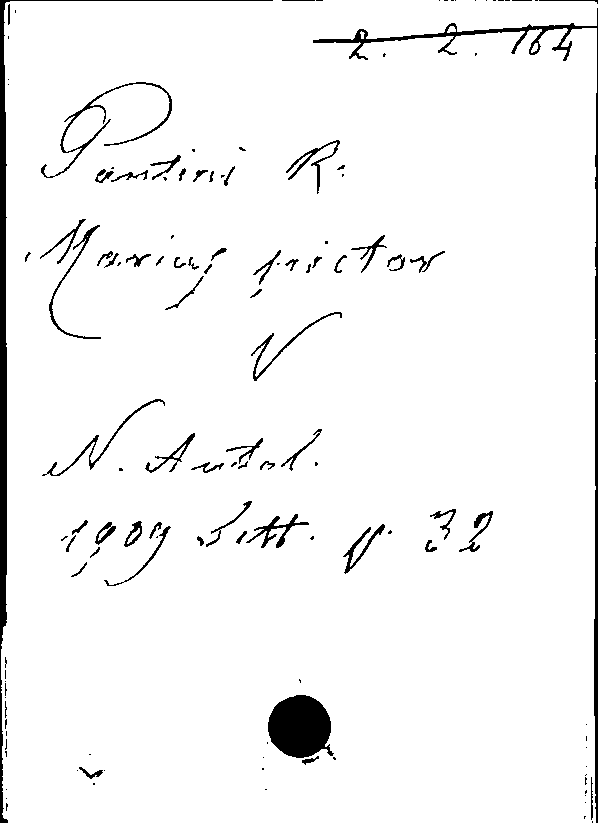 2. 2. 164
Pantini R.
Marius pictor
V
N. Antol.
1909 Sett. p. 32